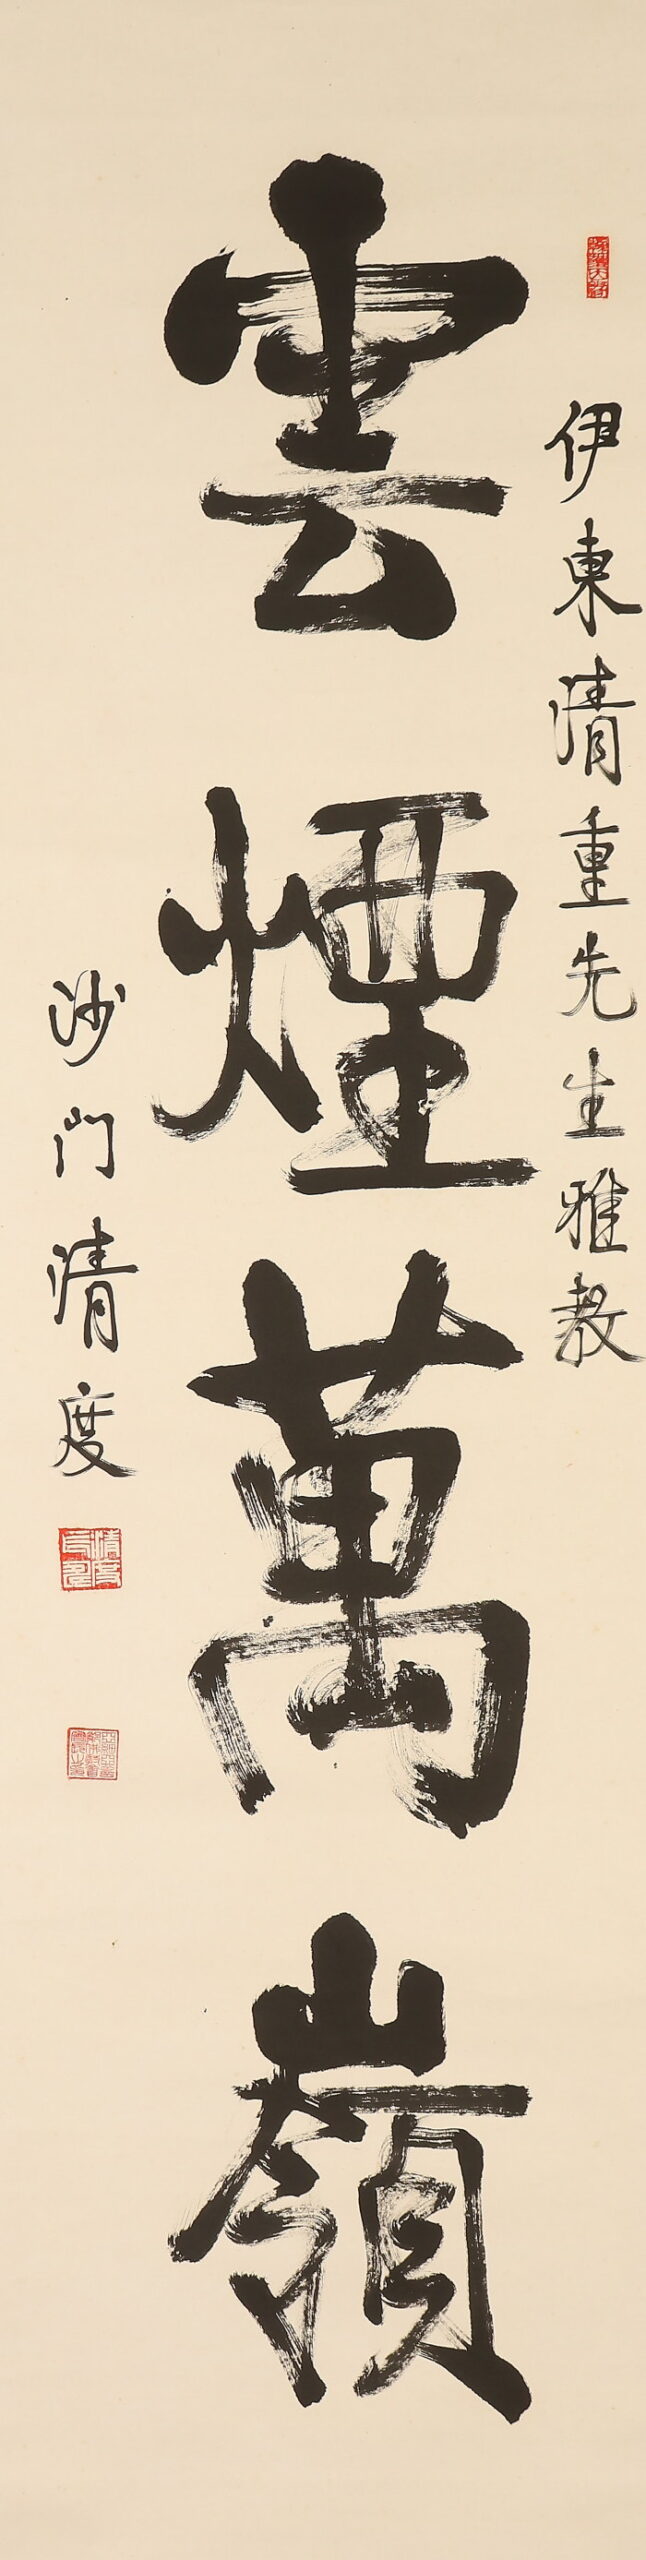 伊東清重先生雅教
雲煙萬嶺
沙門清度